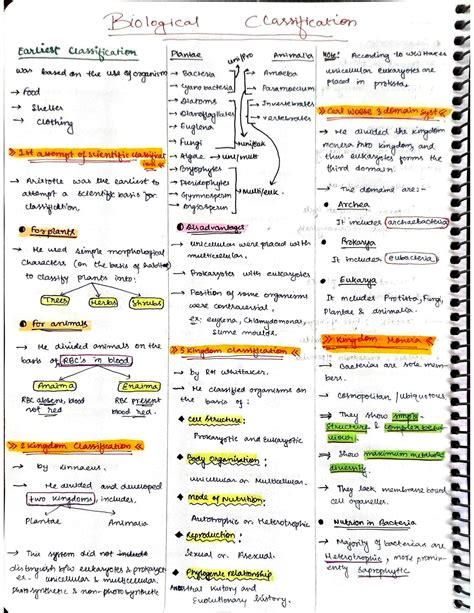 Biological Classification
Earliest Classification
was based on the use of organism
→ Food
→ Shelter
→ Clothing
1st attempt of scientific classification
→ Aristotle was the earliest to
attempt a scientific basis for
classification.
For plants
→ He used simple morphological
characters (on the basis of habitat)
to classify plants into:
Trees Herbs Shrubs
For animals
→ He divided animals on the
basis of RBC's in blood
Anaima Enaima
RBC absent, blood not red
RBC present blood red.
2 Kingdom Classification
→ by Linnaeus.
→ He divided and developed
two kingdoms, includes.
Plantae Animalia
→ This system did not include
distinguish b/w eukaryotes & prokaryotes
er. unicellular & multicellular.
photosynthetic & non-photosynthetic
Plantae
unipro
Animalia
→ Bacteria
→ Cyanobacteria
→ Diatoms
→ Dianoflagellates
→ Euglena
→ Fungi
→ Algae → uni/mult
→ Bryophytes
→ Pteridophytes
→ Gymnosperm
→ Angiosperm
→ Amoeba
→ Paramoecium
→ Invertebrates
→ Vertebrates
uni/euk
Multi/euk.
Disadvantages
→ Unicellular were placed with
multicellular.
→ Prokaryotes with eukaryotes
→ Position of some organisms
were controversial.
ex: euglena, Chlamydomonas,
slime moulds.
5 Kingdom Classification
→ by RH Whittaker.
→ He classified organisms on
the basis of
Cell Structure:
Prokaryotic and Eukaryotic
Body Organisation:
unicellular or Multicellular.
Mode of Nutrition:
Autotrophic or Heterotrophic
Reproduction:
Sexual or Asexual.
Phylogenic relationship
Ancestral history and
Evolutionary history.
Note: According to Whittaker
unicellular eukaryotes are
placed in protista.
Carl Woese 3 domain syst
→ He divided the kingdom
monera into kingdom, and
thus eukaryotes forms the
third domain.
→ The domains are:-
Archea
It includes (archaebacteria)
Prokarya
It includes (eubacteria)
Eukarya
It includes Protista, Fungi,
Plantae & animalia.
Kingdom Monera
→ Bacterias are sole mem-
bers.
→ Cosmopolitan / ubiquotous.
→ They show simple
structure & complex behaviour
→ Show maximum metabolic
diversity.
→ They lack membrane bound
cell organelles.
Nutrion in Bacteria
→ Majority of bacterias are
Heterotrophic, more promin-
ently Saprophytic